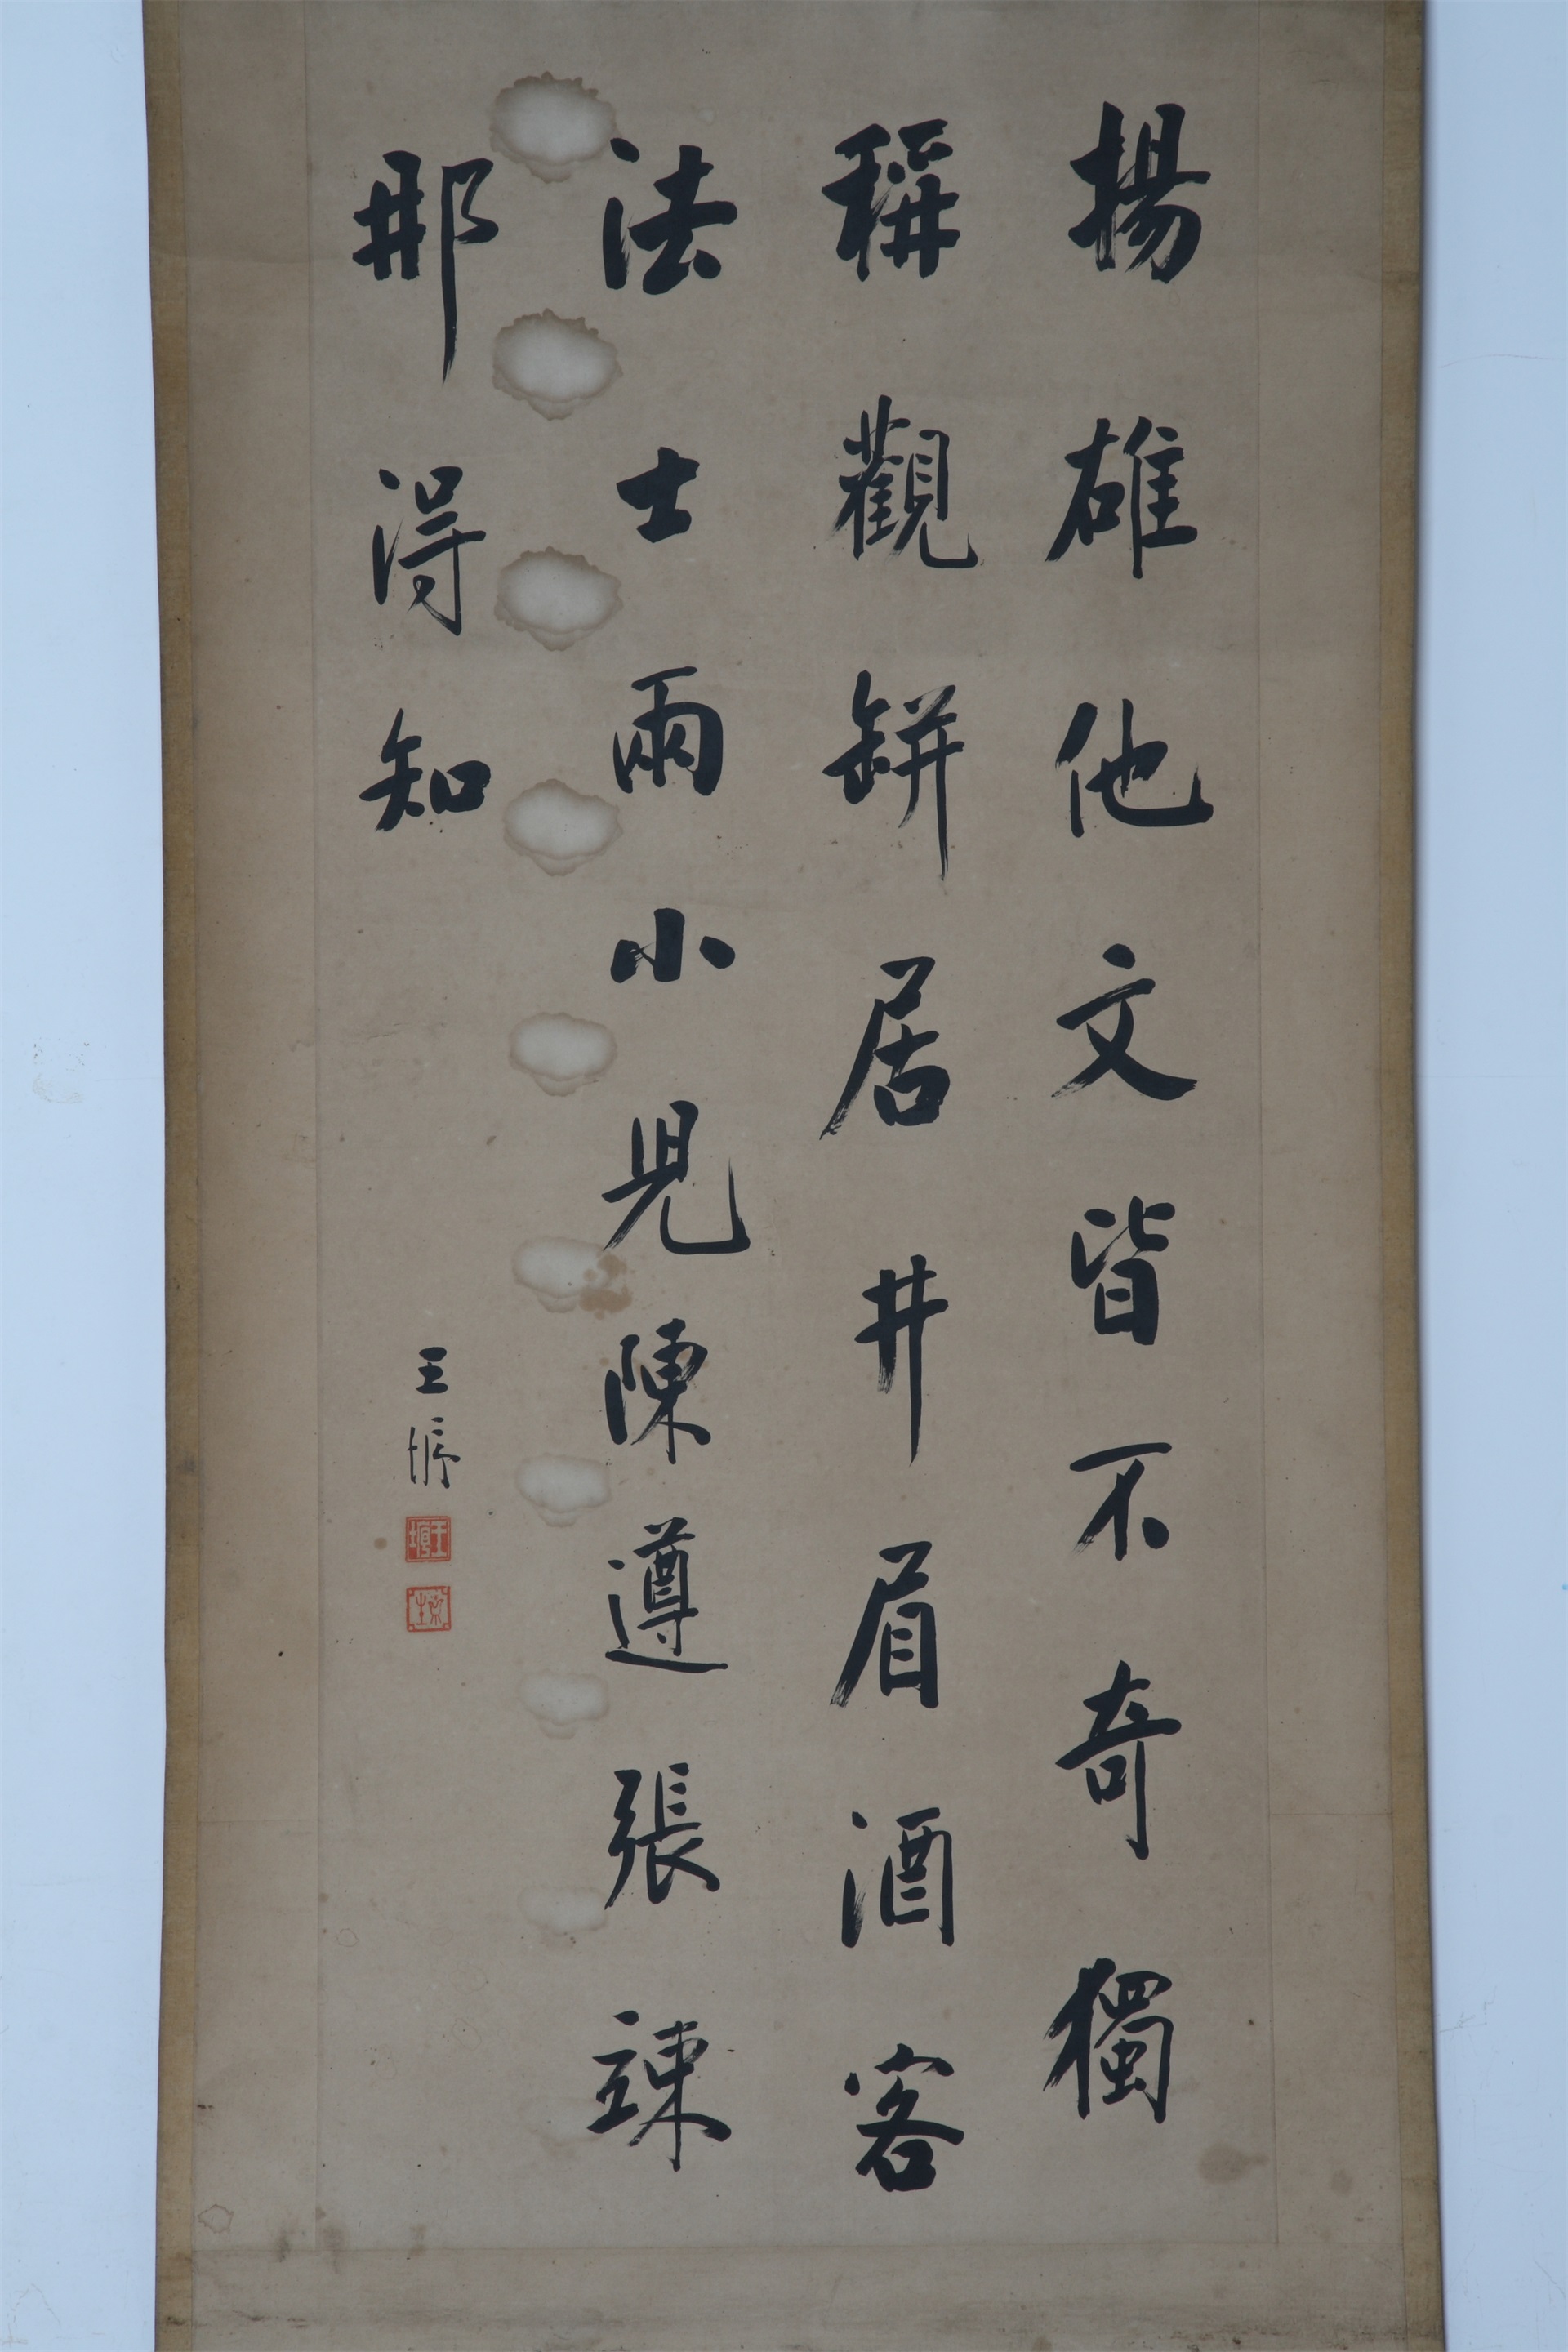 揚雄他文皆不奇獨
稱觀缾居井眉酒客
法士兩小兒陳遵張竦
那得知
王